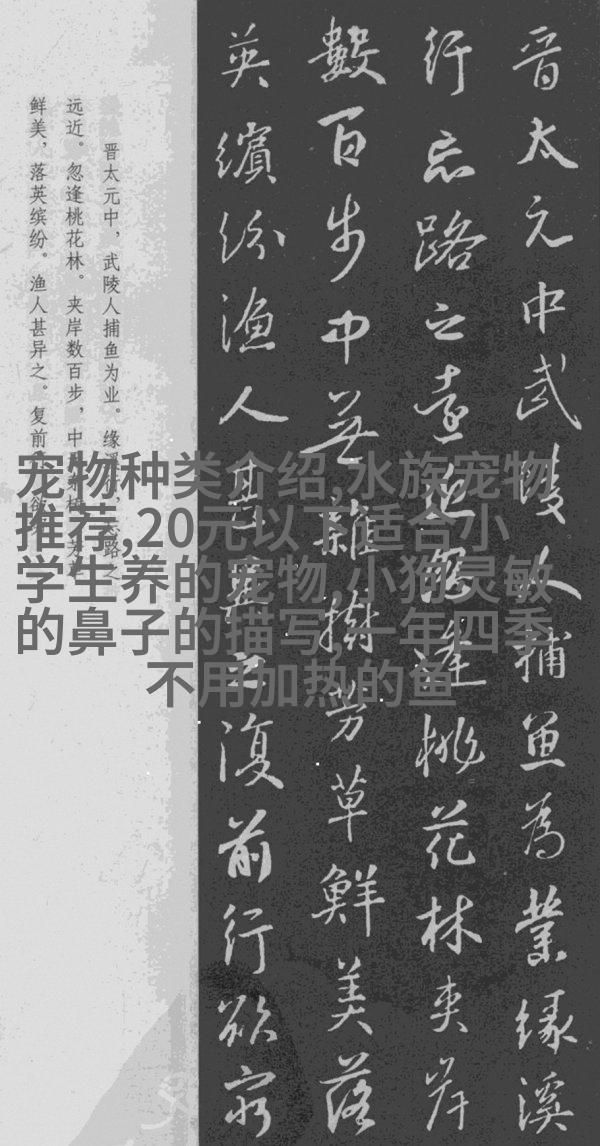 晋太元中武陵人捕魚為業緣溪
行忘路之遠近忽逢桃花林夾岸
數百步中無雜樹芳草鮮美落
英繽紛漁人甚異之復前行欲窮
晋太元中，武陵人捕鱼为业。缘溪行，忘路之
远近。忽逢桃花林。夹岸数百步，中
鲜美，落英缤纷。渔人甚异之。复前
宠物种类介绍,水族宠物
推荐,20元以下适合小
学生养的宠物,小狗灵敏
的鼻子的描写,一年四季
不用加热的鱼